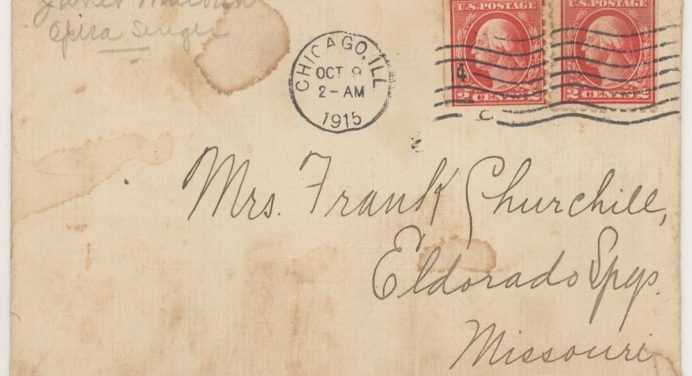 James
Opera Singer
U.S. POSTAGE
U.S. POSTAGE
2 CENTS 2
2 CENTS 2
CHICAGO, ILL.
OCT 9
2-AM
1915
Mrs. Frank Churchill,
Eldorado Spgs.
Missouri